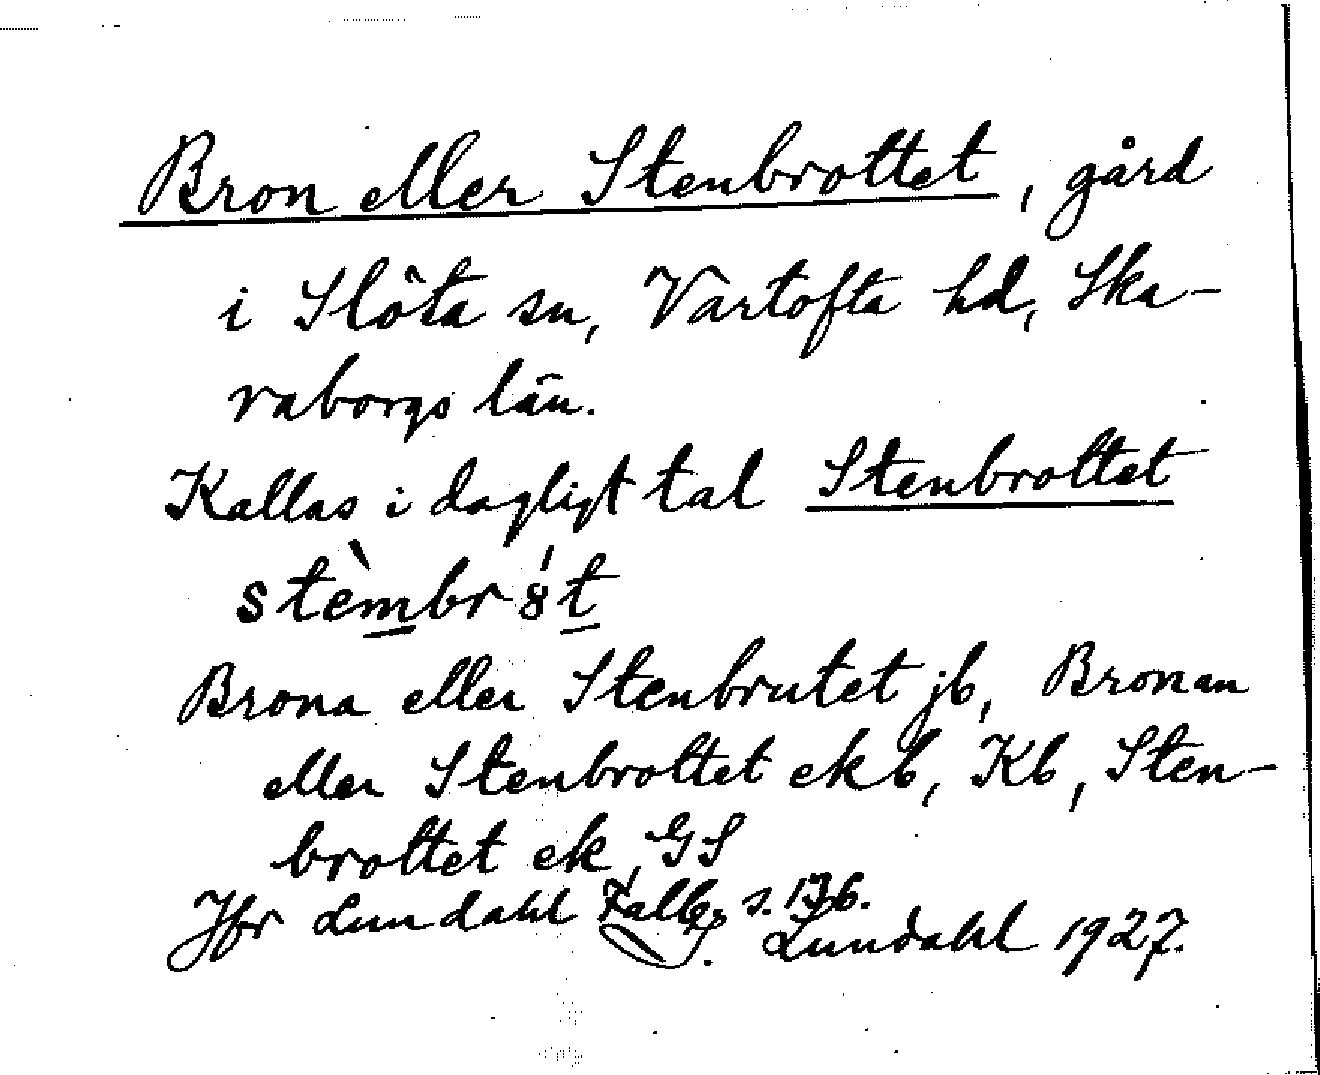 Bron eller Stenbrottet, gård
i Slöta sn, Vartofta hd, Ska-
raborgs län.
Kallas i dagligt tal Stenbrottet
stèmbr8́t
Brona eller Stenbrutet jb, Bronan
eller Stenbrottet ekb, Kb, Sten-
brottet ek, GS
Jfr Lundahl Falb. s. 136.
I. Lundahl 1927.